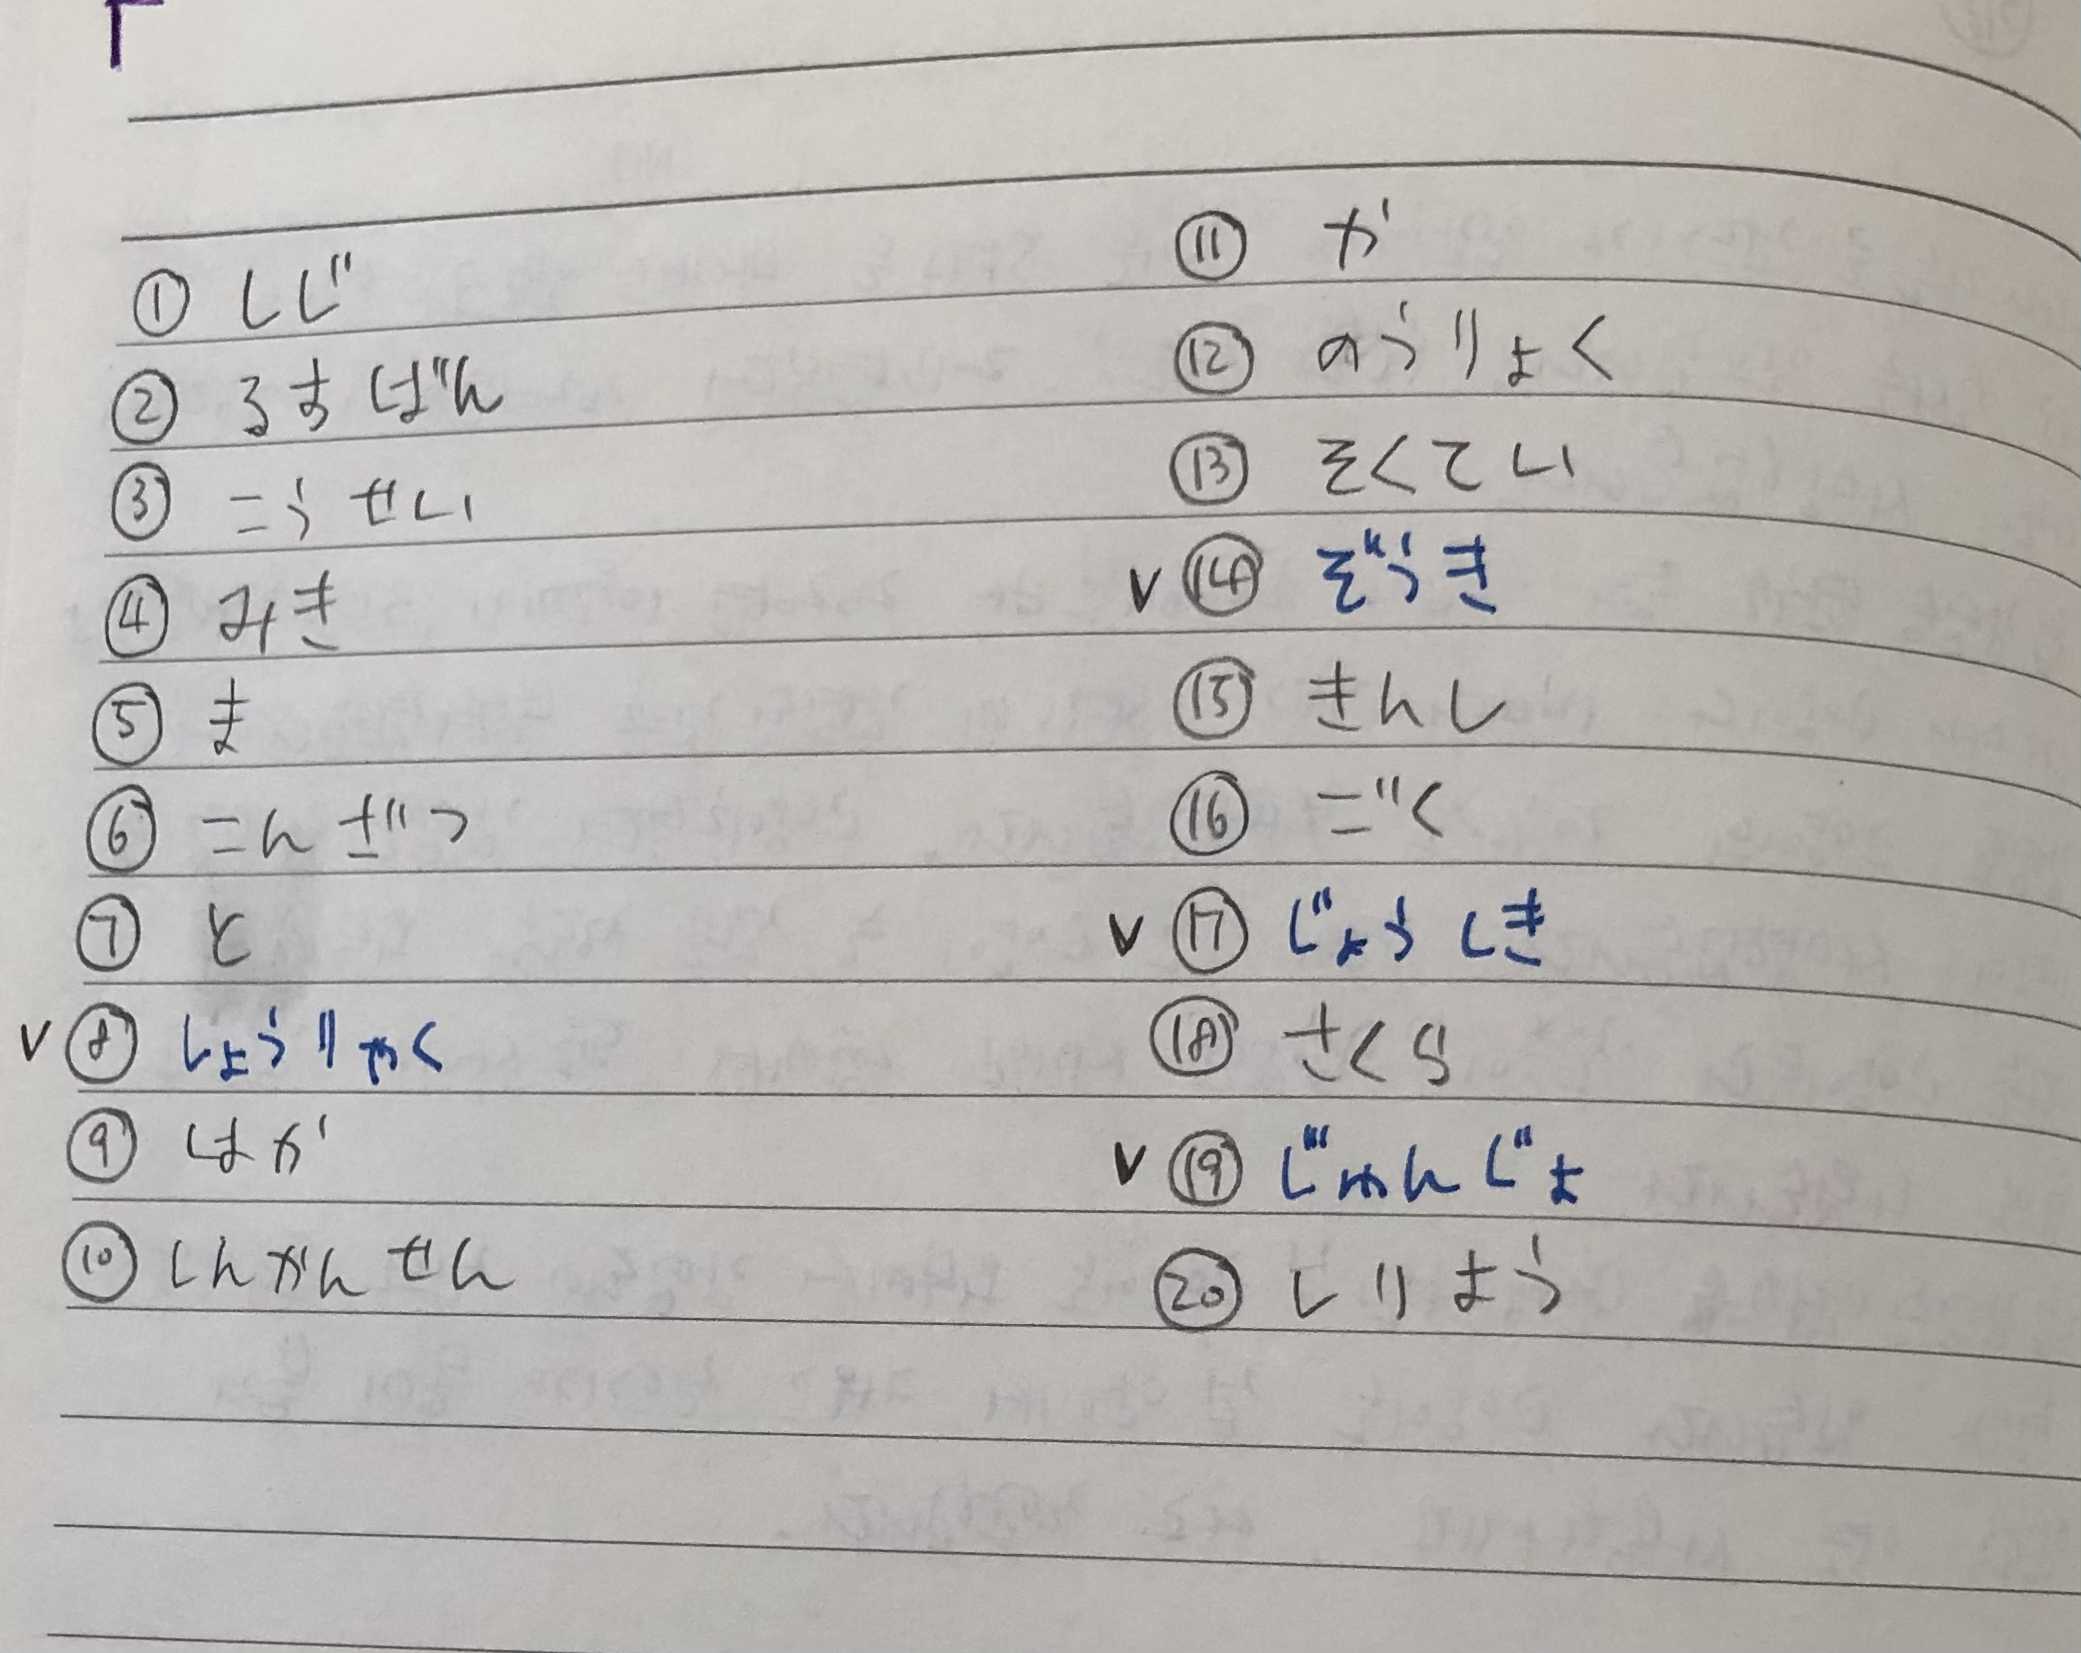 ① しじ
② るすばん
③ こうせい
④ みき
⑤ ま
⑥ こんざつ
⑦ と
V ⑧ しょうりゃく
⑨ はか
⑩ しんかんせん
⑪ が
⑫ のうりょく
⑬ そくてい
V ⑭ ぞうき
⑮ きんし
⑯ ごく
V ⑰ じょうしき
⑱ さくら
V ⑲ じゅんじょ
⑳ しりよう